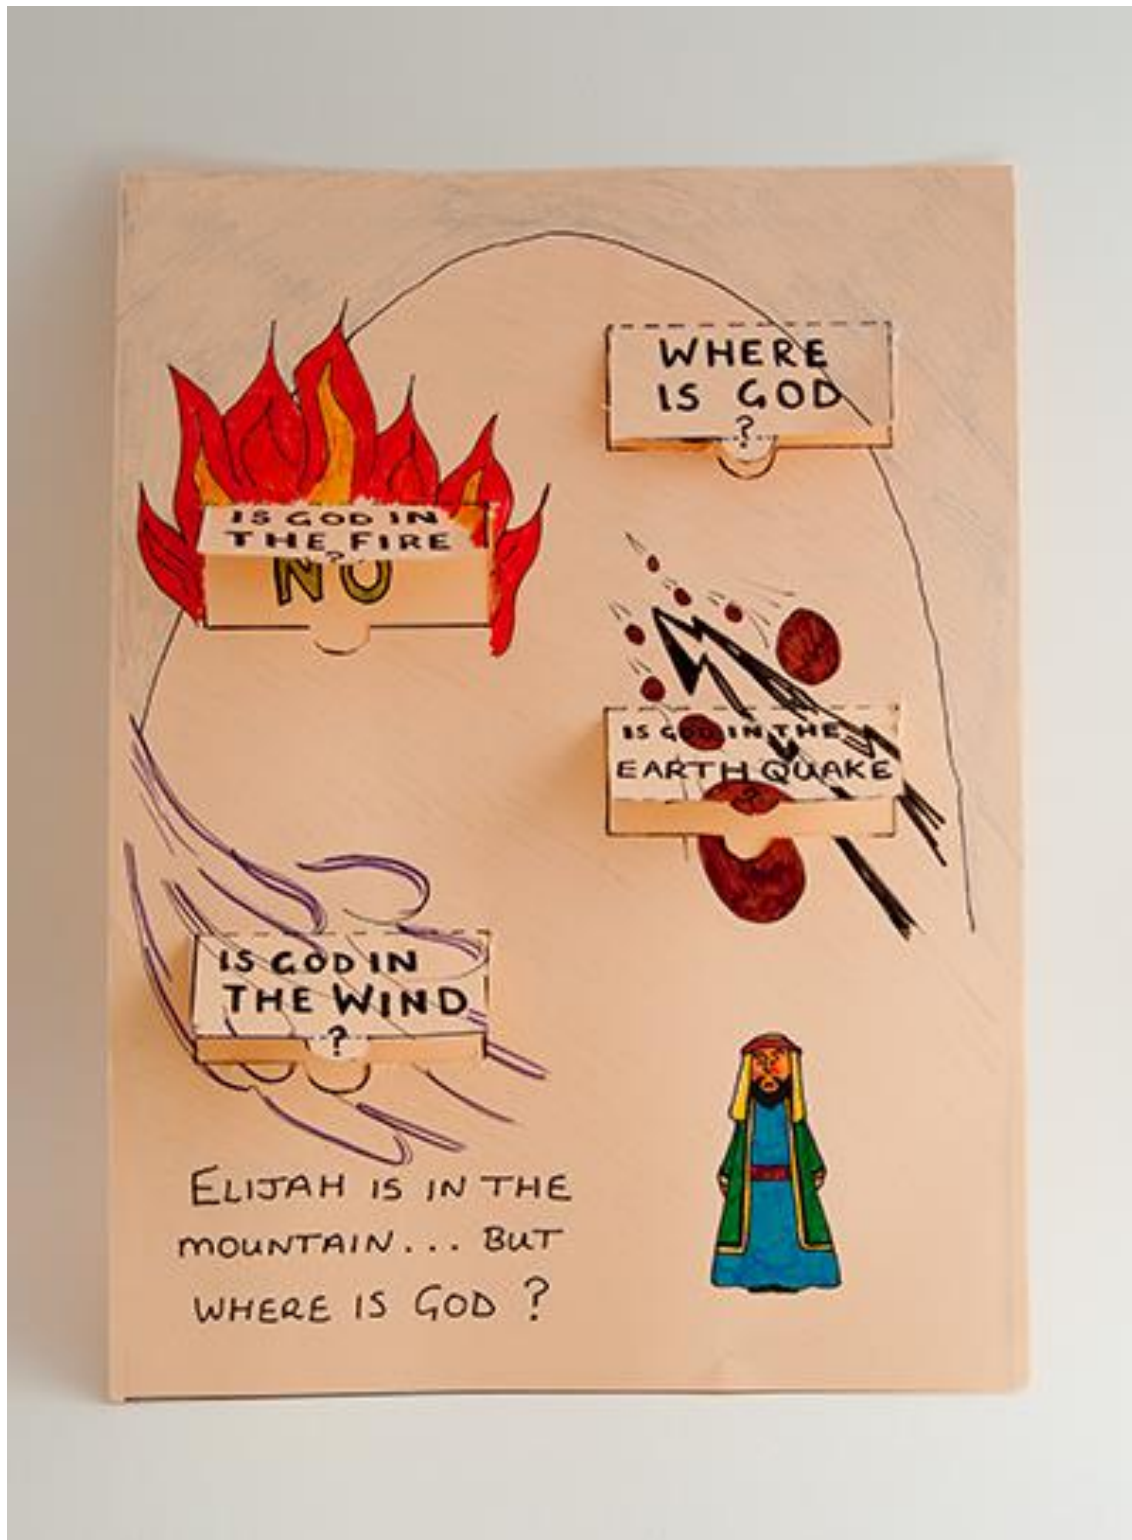 WHERE
IS GOD
?
IS GOD IN
THE FIRE
?
NO
IS GOD IN THE
EARTHQUAKE
?
IS GOD IN
THE WIND
?
ELIJAH IS IN THE
MOUNTAIN... BUT
WHERE IS GOD ?